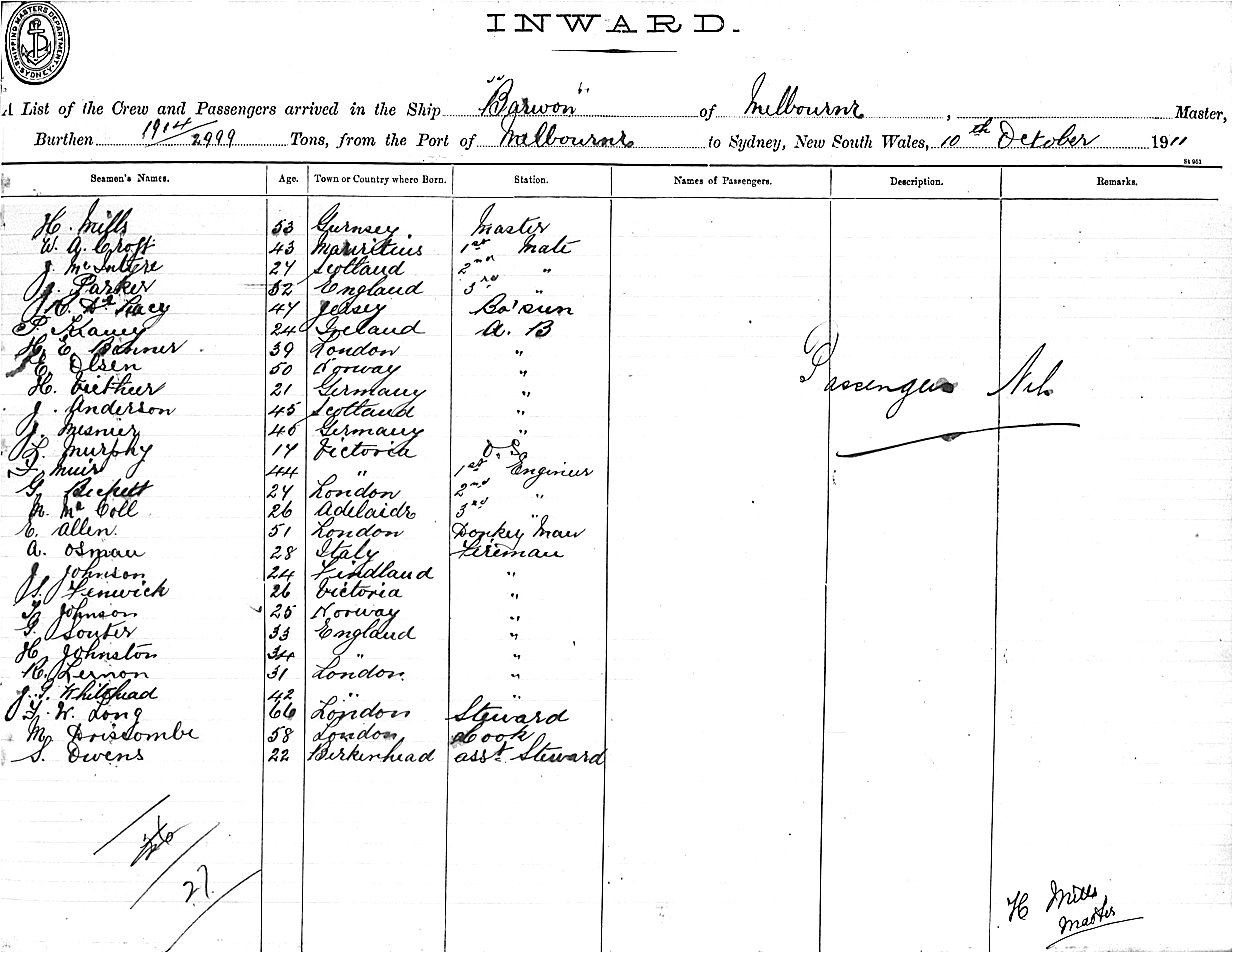 SHIPPING MASTERS DEPARTMENT SYDNEY
INWARD.
A List of the Crew and Passengers arrived in the Ship "Barwon" of Melbourne, Master,
Burthen 1914/2999 Tons, from the Port of Melbourne to Sydney, New South Wales, 10th October 1911
St 961
Seamen's Names. Age. Town or Country where Born. Station. Names of Passengers. Description. Remarks.
H. Mills 53 Gurnsey Master
W. A. Croft 43 Mauritius 1st Mate
J. McIntyre 27 Scotland 2nd "
J. Parker 52 England 3rd "
De Lacy 47 Jersey Bo'sun
P. 24 Ireland A. B
H. E. 39 London "
E. Olsen 50 Norway "
H. 21 Germany "
J. Anderson 45 Scotland "
J. Mesnier 46 Germany "
L. Murphy 17 Victoria O. S
F. Muir 44 " 1st Engineer
G. Beckett 27 London 2nd "
N. McColl 26 Adelaide 3rd "
E. Allen 51 London Donkey Man
A. Osman 28 Italy Fireman
J. Johnson 24 Findland "
S. Fenwick 26 Victoria "
T. Johnson 25 Norway "
G. Souter 33 England "
H. Johnston 34 " "
R. Lernon 31 London "
J. G. Whitehead 42 " "
F. W. Long 66 London Steward
M. Driscombe 58 London Cook
S. Owens 22 Birkenhead asst Steward
Passengers Nil
26
27
H Mills
Master